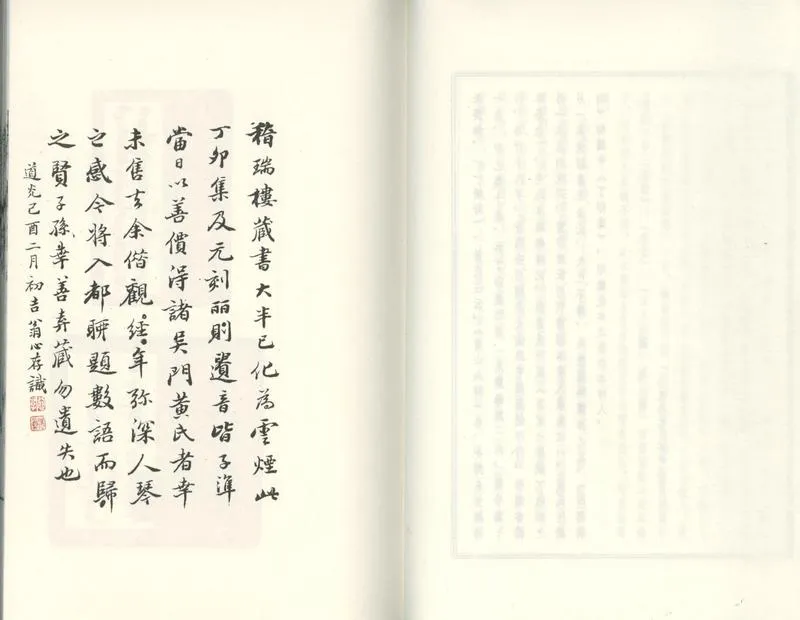 稽瑞樓藏書大半已化為雲煙此
丁卯集及元刻丽則遺音皆子準
當日以善價得諸吳門黃氏者幸
未售去余偕觀經年弥深人琴
之感今將入都聊題數語而歸
之賢子孫幸善弆藏勿遺失也
道光己酉二月初吉翁心存識